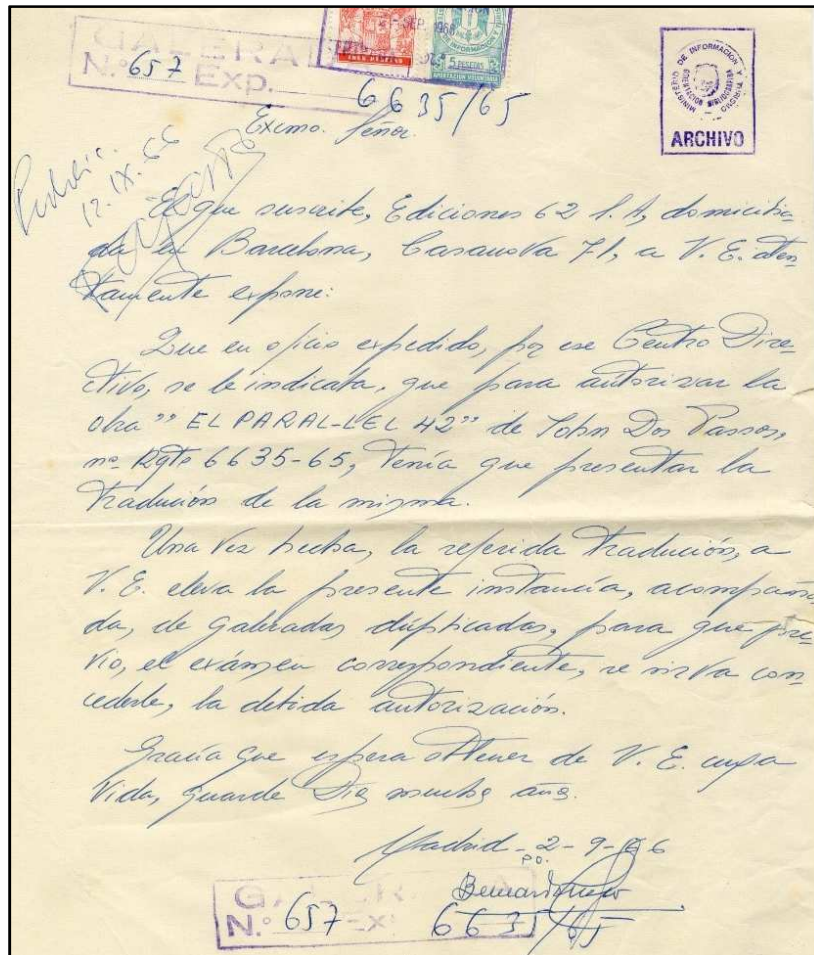 GALERADA
N.º 657 Exp.
6635/65
SEP. 1966
5 PESETAS
MINISTERIO DE INFORMACION Y TURISMO
ARCHIVO
Excmo. Señor.
12. IX. 66
El que suscribe, Ediciones 62 S.A, domicilia-
da en Barcelona, Casanova 71, a V. E. aten-
tamente expone:
Que en oficio expedido, por ese Centro Dire-
ctivo, se le indicaba, que para autorizar la
obra "EL PARAL-LEL 42" de John Dos Passos,
nº Rgtº 6635-65, tenía que presentar la
tradución de la misma.
Una vez hecha, la referida tradución, a
V. E. eleva la presente instancia, acompaña-
da, de galeradas duplicadas, para que pre-
vio, el exámen correspondiente, se sirva con-
cederle, la debida autorización.
Gracia que espera obtener de V. E. cuya
vida, guarde Dios muchos años.
Madrid - 2 - 9 - 66
P.O.
GALERADA
N.º 657 Exp. 6635/65